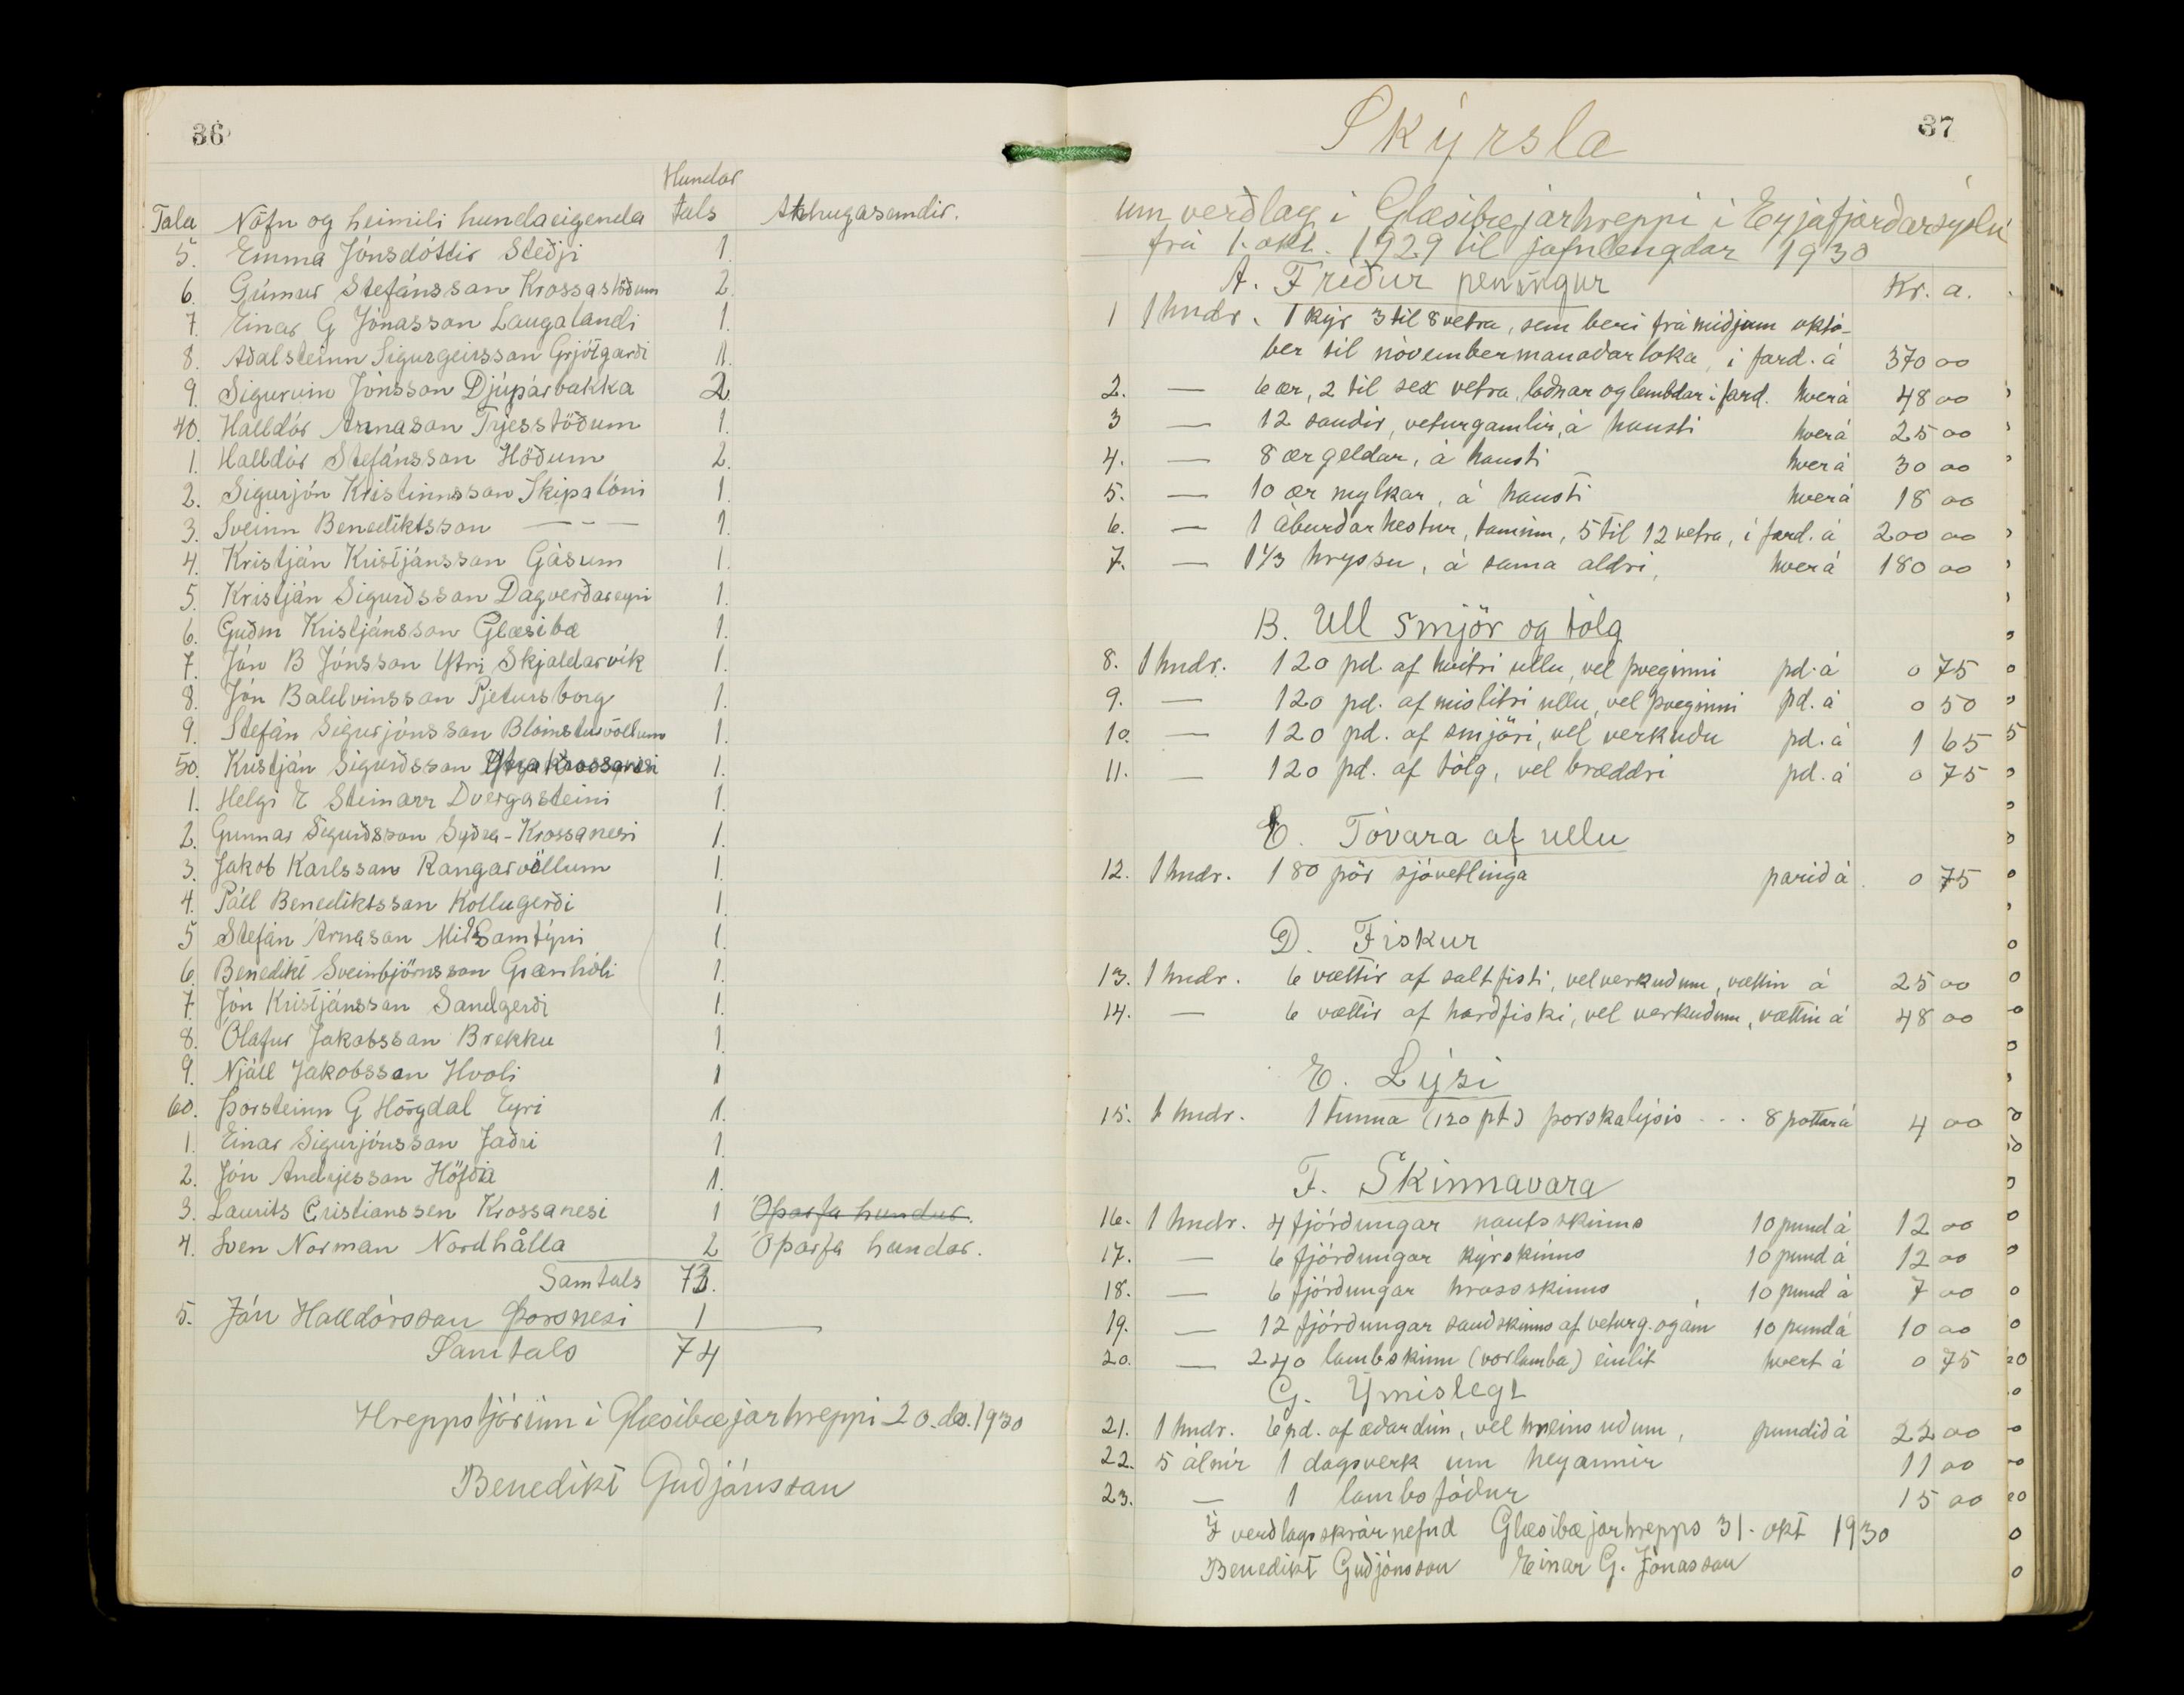 36
Hundar
Tala Nöfn og heimili hundaeigenda tals Athugasemdir.
5. Emma Jónsdóttir Steðji 1.
6. Gúmur Stefánsson Krossastöðum 2.
7. Einar G Jónasson Laugalandi 1.
8. Aðalsteinn Sigurgeirsson Grjótgarði 1.
9. Sigurvin Jónsson Djúpárbakka 2.
40. Halldór Árnason Tréesstöðum 1.
1. Halldór Stefánsson Hlöðum 2.
2. Sigurjón Kristinnsson Skipalóni 1.
3. Sveinn Benediktsson — - — 1.
4. Kristján Kristjánsson Gásum 1.
5. Kristján Sigurðsson Dagverðareyri 1.
6. Guðm Kristjánsson Glæsibæ 1.
7. Jón B Jónsson Ytri Skjaldarvík 1.
8. Jón Baldvinsson Pjetursborg 1.
9. Stefán Sigurjónsson Blómsturvöllum 1.
50. Kristján Sigurðsson 1.
1. Helgi E Steinarr Dvergasteini 1.
2. Gunnar Sigurðsson Syðra-Krossanesi 1.
3. Jakob Karlsson Rangárvöllum 1.
4. Páll Benediktsson Kollugerði 1.
5 Stefán Árnason Mið Samtýni 1.
6. Benedikt Sveinbjörnsson Grænhóli 1.
7. Jón Kristjánsson Sandgerði 1.
8. Ólafur Jakobsson Brekku 1.
9. Njáll Jakobsson Hvoli 1
60. Þorsteinn G Hörgdal Eyri 1.
1. Einar Sigurjónsson Jaðri 1.
2. Jón Andrjesson Höfða 1.
3. Laurits Cristianssen Krossanesi 1 Óþarfa hundur.
4. Sven Norman Nordhålla 2 Óþarfa hundar.
Samtals 73.
5. Jón Halldórsson Þorsnesi 1
Samtals 74
Hreppstjórinn í Glæsibæjarhreppi 20. des. 1930
Benedikt Guðjónsson
37
Skýrsla
um verðlag í Glæsibæjarhreppi í Eyjafjarðarsýslu
frá 1. okt. 1929 til jafnlengdar 1930
A. Fríður peningur Kr. a.
1 1 hndr. 1 kýr 3 til 8 vetra, sem beri frá miðjum októ-
ber til nóvembermánaðarloka, í fard. á 370 00
2. — 6 ær, 2 til sex vetra, loðnar og lembdar í fard. hver á 48 00
3 — 12 sauðir, veturgamlir, á hausti hver á 25 00
4. — 8 ær geldar, á hausti hver á 30 00
5. — 10 ær mylkar, á hausti hver á 18 00
6. — 1 áburðarhestur, taminn, 5 til 12 vetra, í fard. á 200 00
7. — 1 1/3 hryssu, á sama aldri, hver á 180 00
B. Ull smjör og tólg
8. 1 hndr. 120 pd. af hvítri ullu, vel þveginni pd. á 0 75
9. — 120 pd. af mislitri ullu, vel þveginni pd. á 0 50
10. — 120 pd. af smjöri, vel verkuðu pd. á 1 65
11. — 120 pd. af tólg, vel bræddri pd. á 0 75
C. Tóvara af ullu
12. 1 hndr. 180 pör sjóvetlinga parið á 0 75
D. Fiskur
13. 1 hndr. 6 vættir af saltfiski, vel verkuðum, vættin á 25 00
14. — 6 vættir af harðfiski, vel verkuðum, vættin á 48 00
E. Lýsi
15. 1 hndr. 1 tunna (120 pt) þorskalýsis - - - 8 pottar á 4 00
F. Skinnavara
16. 1 hndr. 4 fjórðungar nautsskinns 10 pund á 12 00
17. — 6 fjórðungar kýrskinns 10 pund á 12 00
18. — 6 fjórðungar hrossskinns 10 pund á 7 00
19. — 12 fjórðungar sauðskinns af veturg. og ám 10 pund á 10 00
20. — 240 lambskinn (vorlamba) einlit hvert á 0 75
G. Ýmislegt
21. 1 hndr. 6 pd. af æðardún, vel hreinsuðum, pundið á 22 00
22. 5 álnir 1 dagsverk um heyannir 11 00
23. — 1 lambsfóður 15 00
Í verðlagsskrárnefnd Glæsibæjarhrepps 31. okt 1930
Benedikt Guðjónsson Einar G. Jónasson